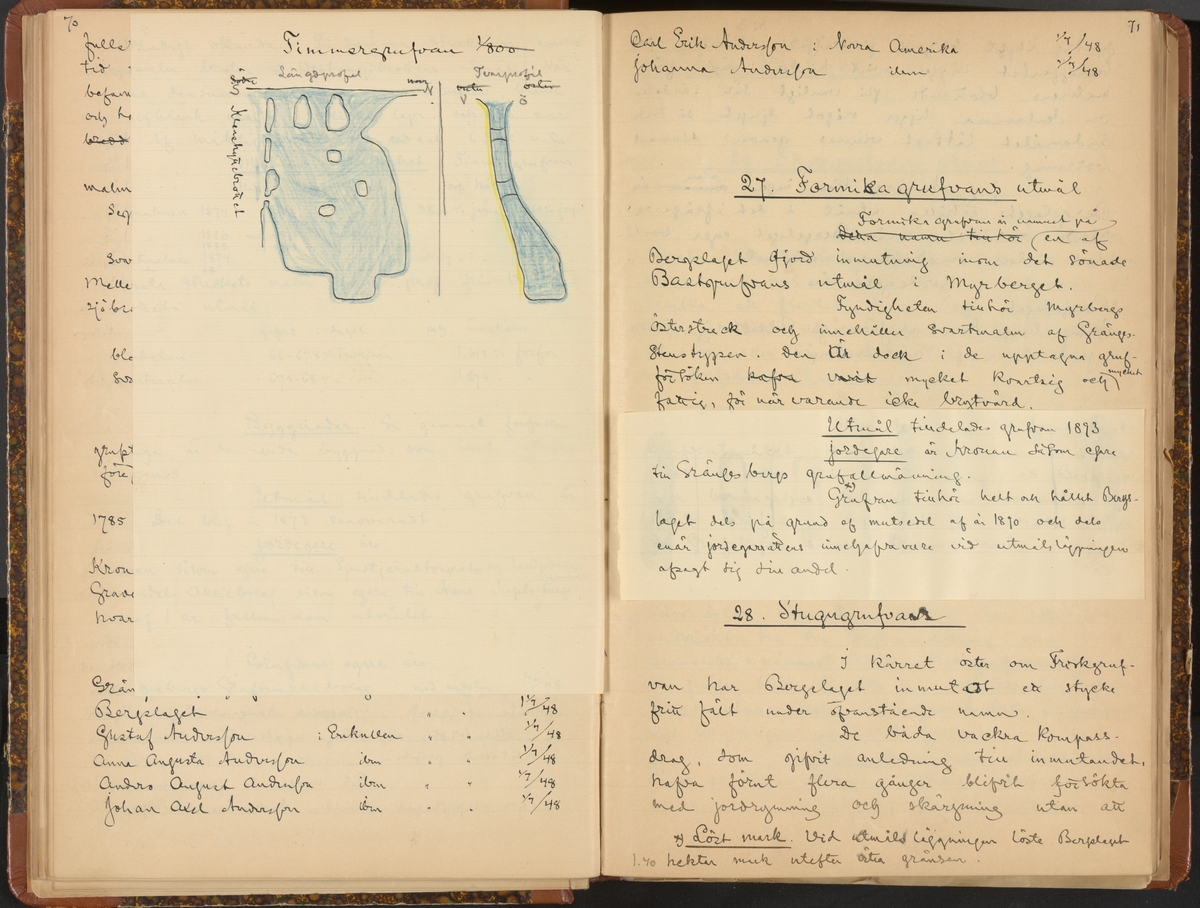 70
fulla
tid
befun
och
bredd
malm
Svar
Melle
Sjöbr
blo
Sva
före
1785
Kron
Grave
hvar
Timmergrufvan 1/800
Längdprofil
Tvärprofil
söder
S
norr
N
vester
V
öster
Ö
Grän
Bergslaget " " 1 1/4/48
Gustaf Andersson : Enkullen " " 1/4/48
Anna Augusta Andersson ibm " " 1/4/48
Anders August Andersson ibm " " 1/4/48
Johan Axel Andersson ibm " " 1/4/48
71
Carl Erik Andersson : Norra Amerika 1/4/48
Johanna Andersson idem 1/4/48
27. Formika grufvans utmål
Formika grufvan är namnet på
detta namn tillhör en af
Bergslaget gjord inmutning inom det sönade
Bastgrufvans utmål i Myrberget.
Fyndigheten tillhör Myrbergs
österstreck och innehåller Svartmalm af Gränges-
bergstypen. Den är dock i de upptagna gruf-
försöken hafva varit mycket kvartsig och mycket
fattig, för närvarande icke brytvärd.
Utmål tilldelades grufvan 1893
Jordegare är Kronan såsom egare
till Grängesbergs grufallmänning.
x) Grufvan tillhör helt och hållet Bergs-
laget dels på grund af mutsedel af år 1890 och dels
enär jordegarerättens innehafvare vid utmålsläggningen
afsagt sig sin andel.
28. Stugugrufvan
I kärret öster om Friskgruf-
van har Bergslaget inmutat ett stycke
fritt fält under ofvanstående namn.
De båda vackra kompass-
drag, som gifvit anledning till inmutandet,
hafva förut flera gånger blifvit försökta
med jordrymning och skärpning utan att
x) Löst mark. Vid utmålsläggningen löste Bergslaget
1.40 hektar mark utefter östra gränsen.